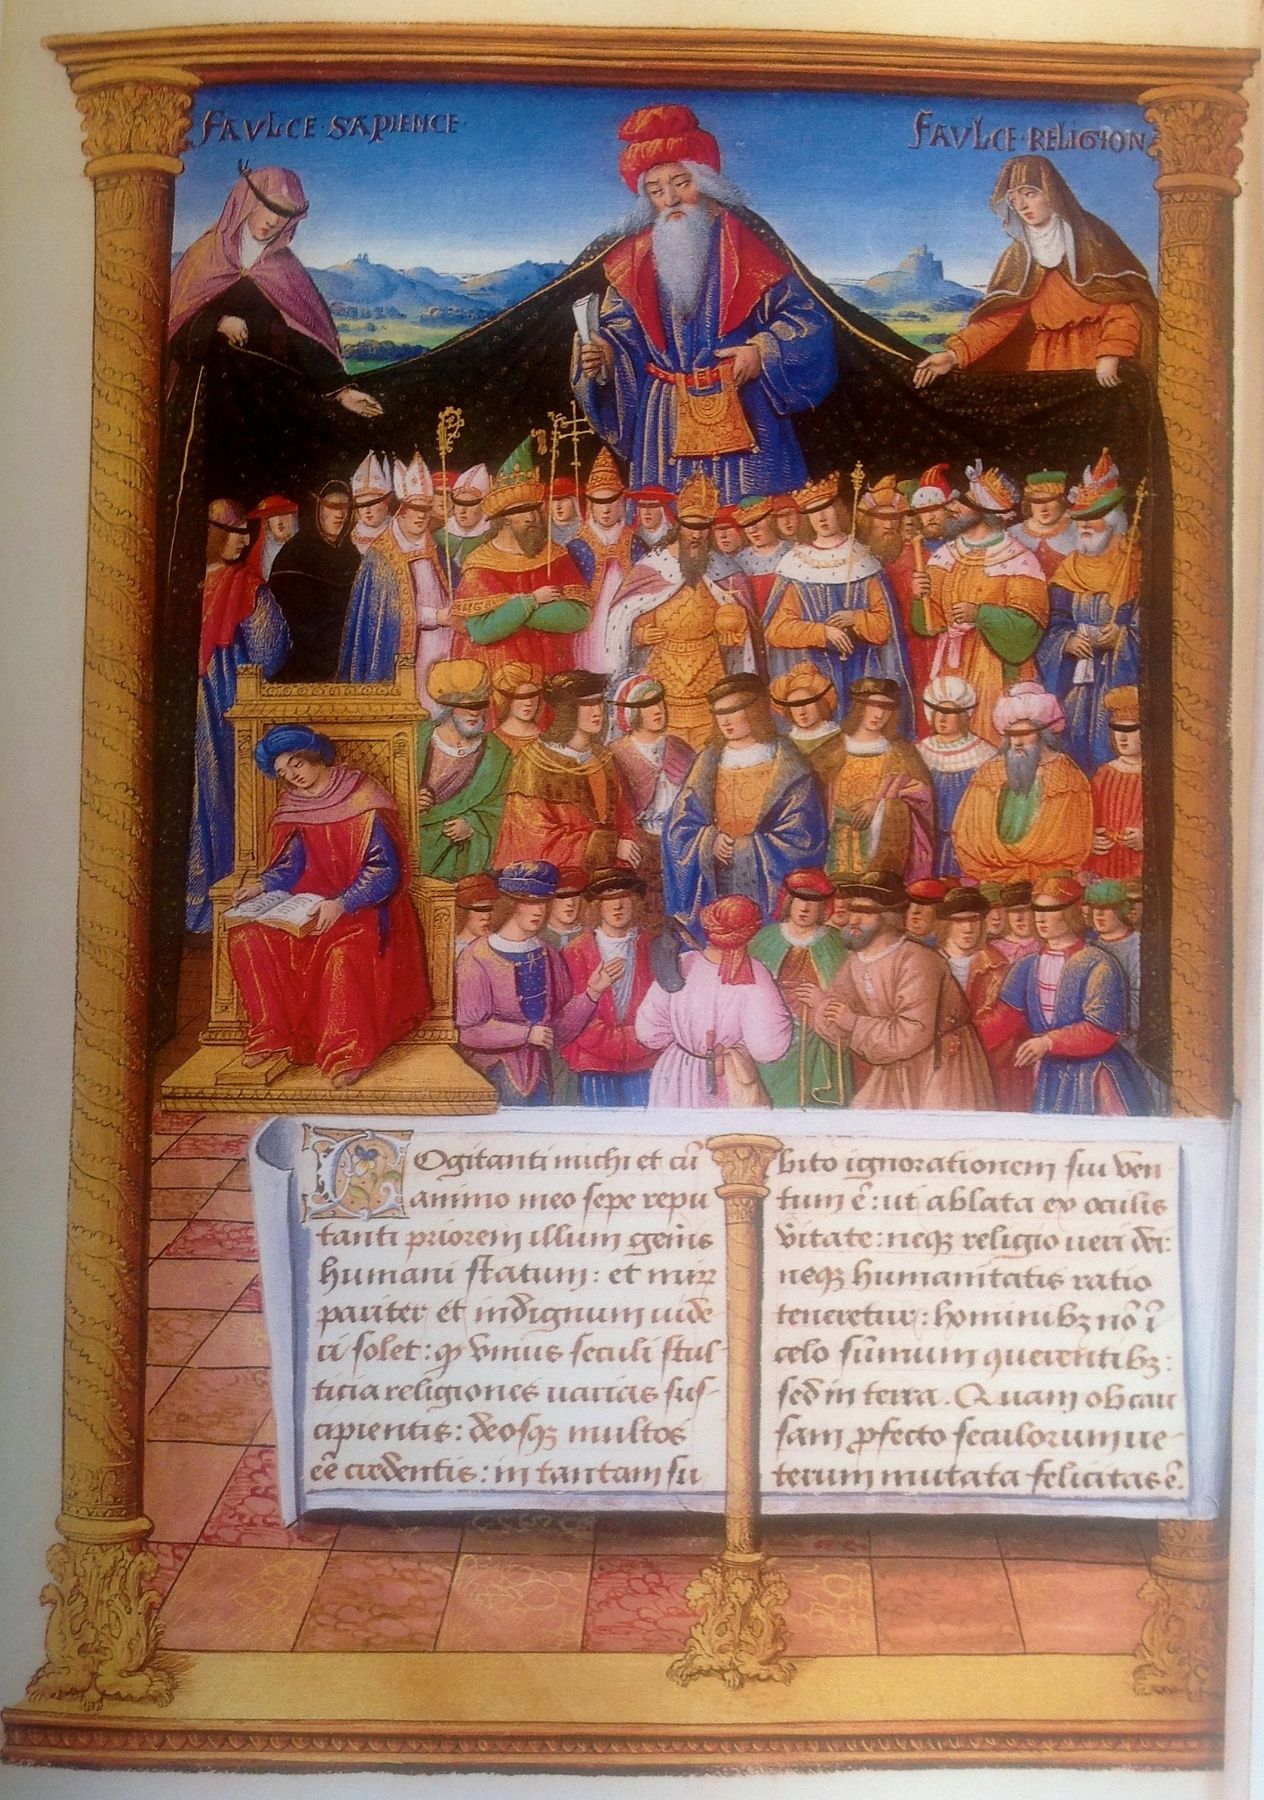 FAVLCE·SAPIENCE·
FAVLCE·RELIGION
COgitanti michi et cū
animo meo sepe repu
tanti priorem illum gen̄is
humani statum: et miꝝ
pariter et indignum uide
ri solet: ꝙ vnius seculi stul-
ticia religiones uarias sus-
cipientis: deosqꝫ multos
eē credentis: in tantam su
bito ignorationem sui ven
tum ē: ut ablata ex oculis
v̄itate: neqꝫ religio ueri dei:
neqꝫ humanitatis ratio
teneretur: hominibꝫ nō ī
celo sūmum querentibꝫ:
sed in terra. Quam ob cau
sam ꝓfecto seculorum ue-
terum mutata felicitas ē.